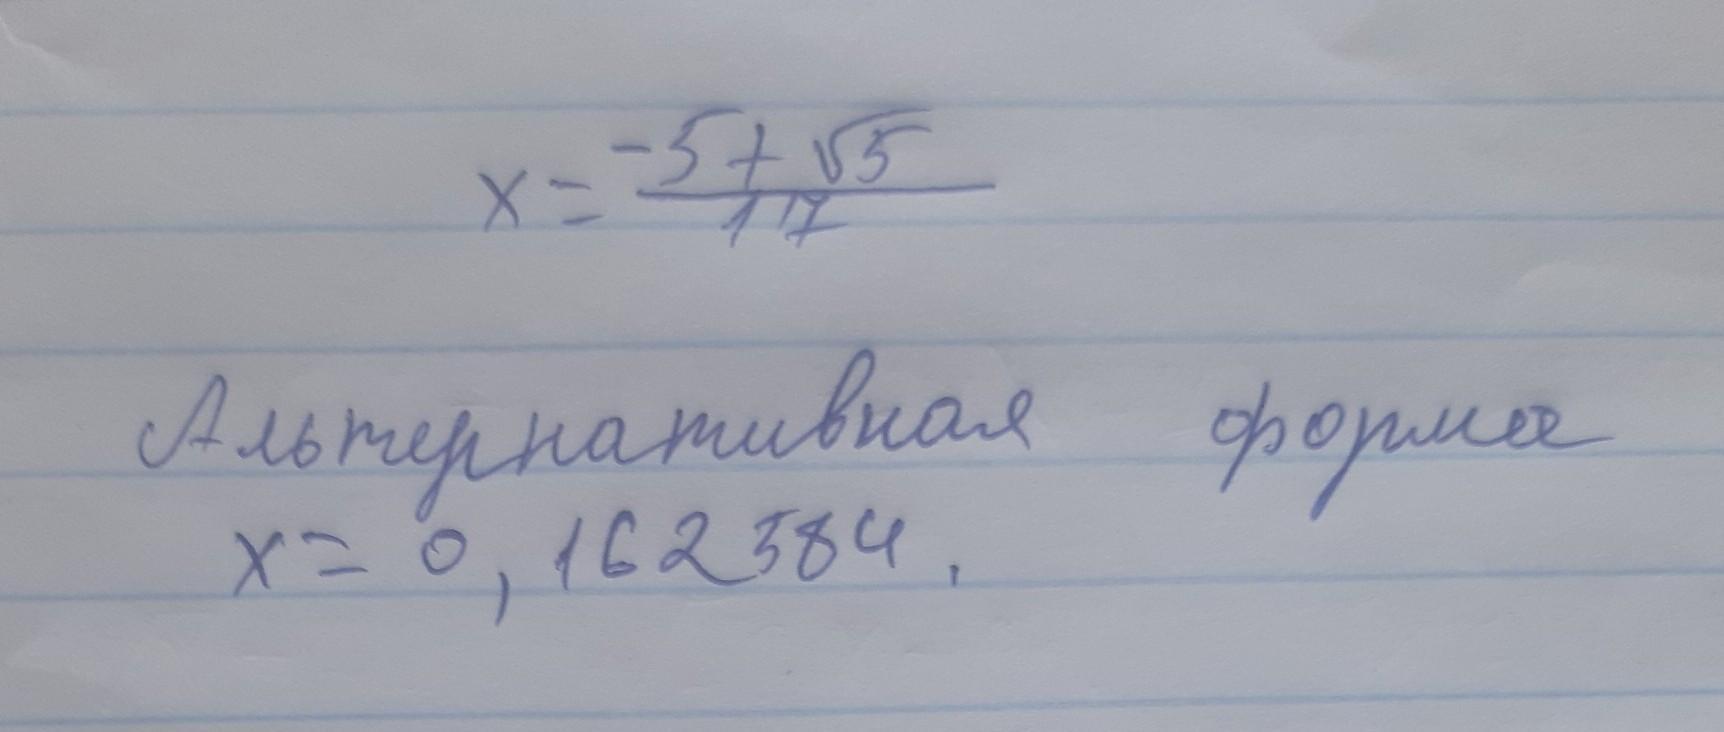 x = (-5 + √5) / 17
Альтернативная форма
x = 0,162584.